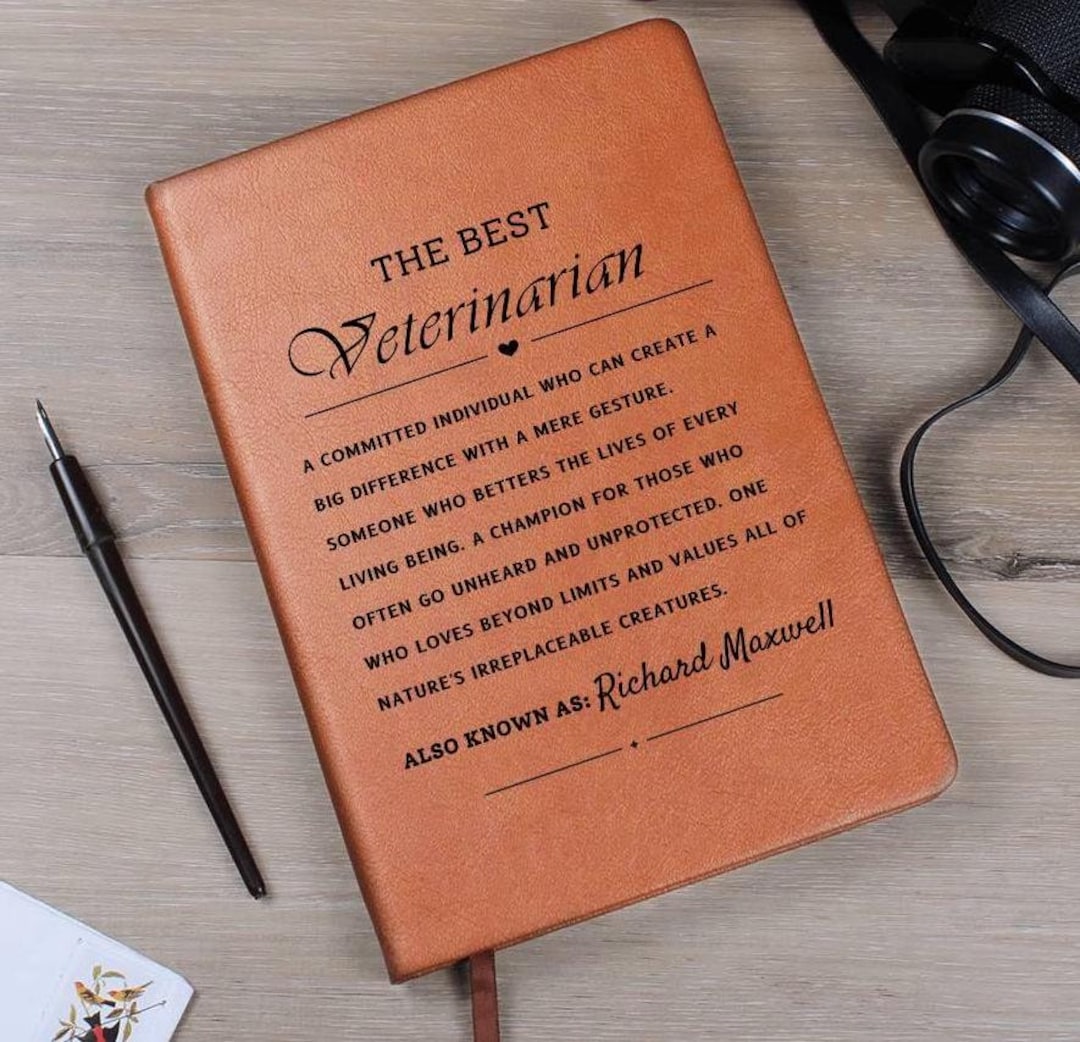 THE BEST
Veterinarian
A COMMITTED INDIVIDUAL WHO CAN CREATE A
BIG DIFFERENCE WITH A MERE GESTURE.
SOMEONE WHO BETTERS THE LIVES OF EVERY
LIVING BEING. A CHAMPION FOR THOSE WHO
OFTEN GO UNHEARD AND UNPROTECTED. ONE
WHO LOVES BEYOND LIMITS AND VALUES ALL OF
NATURE'S IRREPLACEABLE CREATURES.
ALSO KNOWN AS: Richard Maxwell